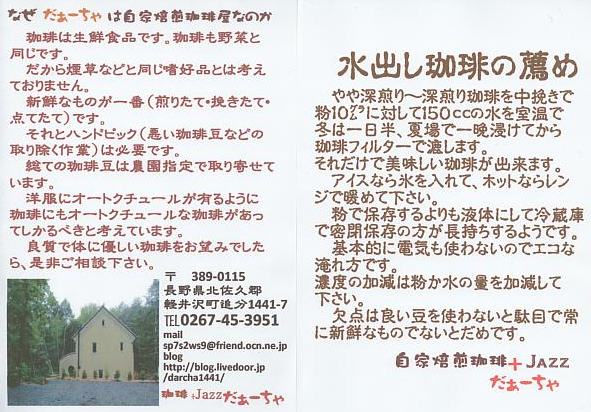 なぜ だぁーちゃ は自家焙煎珈琲屋なのか
珈琲は生鮮食品です。珈琲も野菜と
同じです。
だから煙草などと同じ嗜好品とは考え
ておりません。
新鮮なものが一番(煎りたて・挽きたて・
点てたて)です。
それとハンドピック(悪い珈琲豆などの
取り除く作業)は必要です。
総ての珈琲豆は農園指定で取り寄せて
います。
洋服にオートクチュールが有るように
珈琲にもオートクチュールな珈琲があっ
てしかるべきと考えています。
良質で体に優しい珈琲をお望みでした
ら、是非ご相談下さい。
〒 389-0115
長野県北佐久郡
軽井沢町追分1441-7
TEL0267-45-3951
mail
sp7s2ws9@friend.ocn.ne.jp
blog
http://blog.livedoor.jp
/darcha1441/
珈琲+Jazzだぁーちゃ
水出し珈琲の薦め
やや深煎り～深煎り珈琲を中挽きで
粉10㌘に対して150ccの水を室温で
冬は一日半、夏場で一晩浸けてから
珈琲フィルターで漉します。
それだけで美味しい珈琲が出来ます。
アイスなら氷を入れて、ホットならレン
ジで暖めて下さい。
粉で保存するよりも液体にして冷蔵庫
で密閉保存の方が長持ちするようです。
基本的に電気も使わないのでエコな
淹れ方です。
濃度の加減は粉か水の量を加減して
下さい。
欠点は良い豆を使わないと駄目で常
に新鮮なものでないとだめです。
自家焙煎珈琲+Jazz
だぁーちゃ